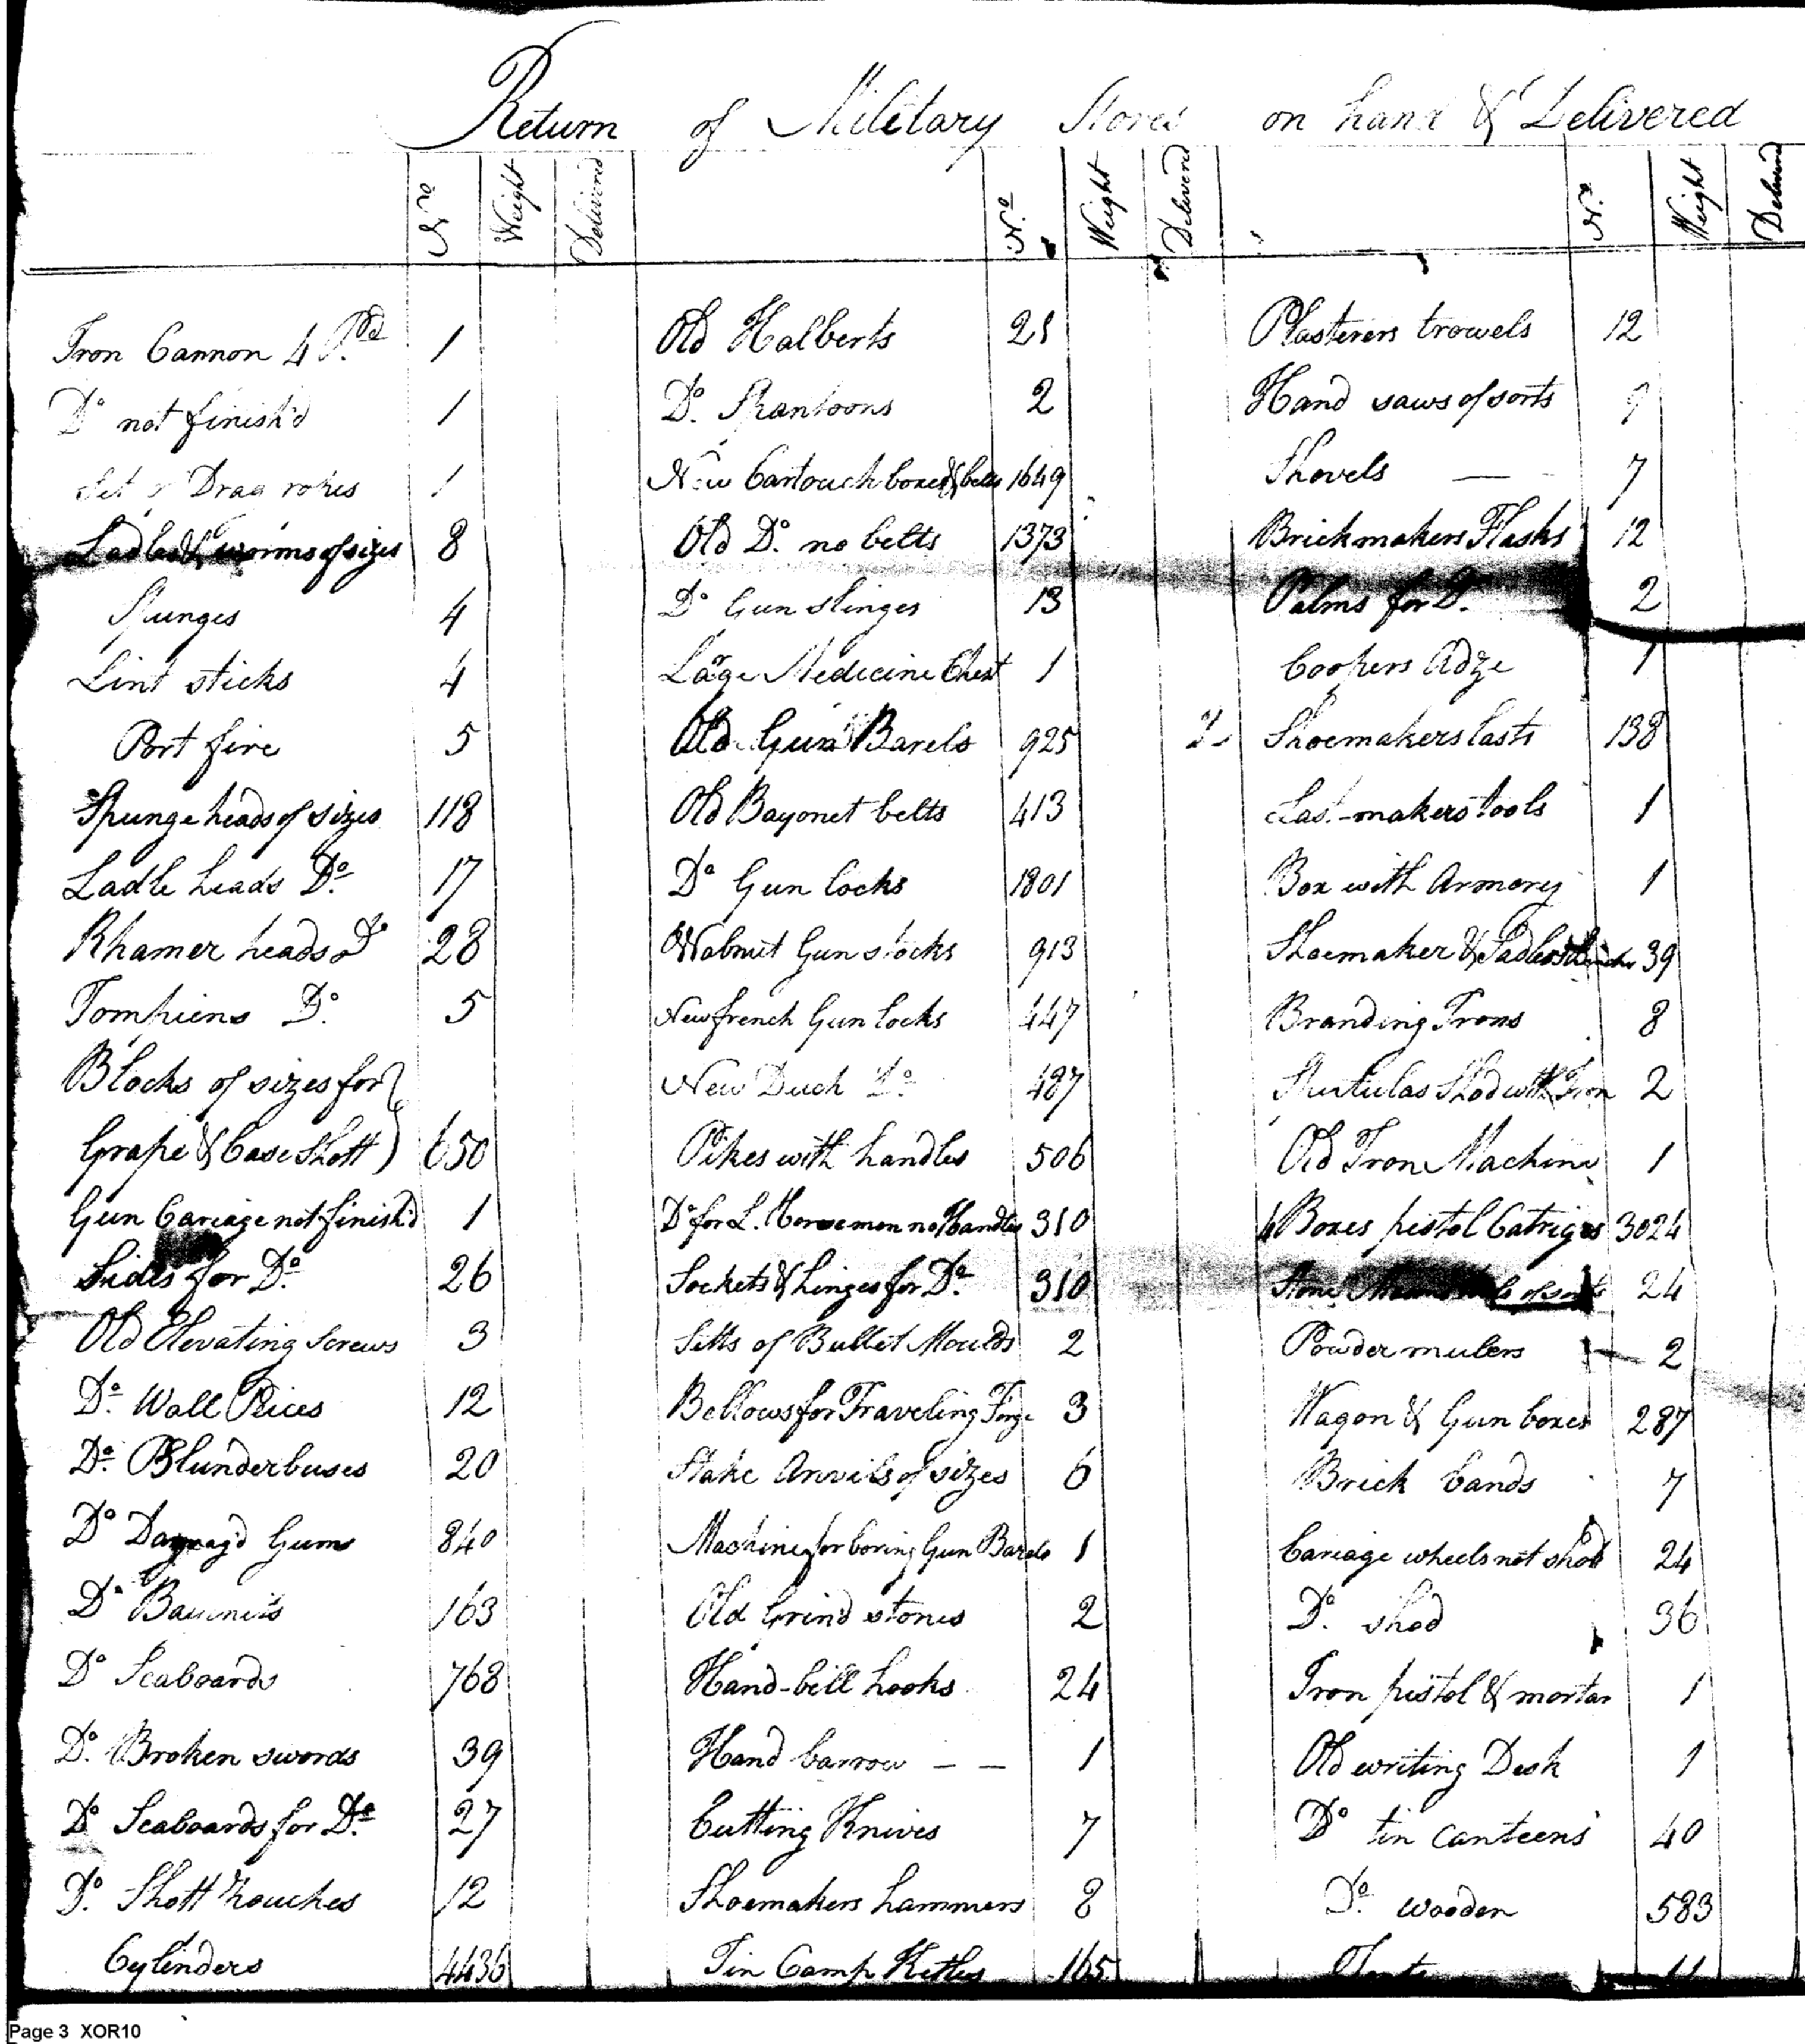 Return of Military Stores on hand & Delivered
No Weight Delivered No Weight Delivered No Weight Delivered
Iron Cannon 4 Pd 1
Do not finish'd 1
Set Drag ropes 1
Ladles & worms of sizes 8
Spunges 4
Lint sticks 4
Port fire 5
Spunge heads of sizes 118
Ladle heads Do 17
Rhamer heads Do 28
Tompiens Do 5
Blocks of sizes for
Grape & Case Shott 650
Gun Cariage not finish'd 1
Sides for Do 26
Old Elevating Screws 3
Do Wall Peices 12
Do Blunderbuses 20
Do Damag'd Guns 840
Do 163
Do Scaboards 768
Do Broken swords 39
Do Scaboards for Do 27
Do Shott Pouches 12
Cylinders 4436
Old Halberts 21
Do Spantoons 2
New Cartouch boxes & belts 1649
Old Do no belts 1373
Do Gun slinges 13
Large Medicine Chest 1
Old Gun Barels 925
Old Bayonet belts 413
Do Gun locks 1801
Walnut Gun stocks 913
New french Gun locks 447
New Duch Do 487
Pikes with handles 506
Do for L. Horsemen no Handles 310
Sockets & hinges for Do 310
Setts of Bullet Moulds 2
Bellows for Traveling Forge 3
Stake Anvils of sizes 6
Machine for boring Gun Barels 1
Old Grind stones 2
Hand-bill hooks 24
Hand barrow — — 1
Cutting Knives 7
Shoemakers hammers 8
Tin Camp Kettles 165
Plasterers trowels 12
Hand saws of sorts 9
Shovels — 7
Brickmakers Flasks 12
Palms for Do 2
Coopers Adze 1
Shoemakers lasts 138
Last-makers tools 1
Box with Armory 1
Shoemaker & Sadlers 39
Branding Irons 8
Shod with Iron 2
Old Iron Machine 1
4 Boxes pistol Catriges 3024
Stone of sorts 24
Powder mulers 2
Wagon & Gun boxes 287
Brick bands 7
Cariage wheels not shod 24
Do shod 36
Iron pistol & mortar 1
Old writing Desk 1
Do tin canteens 40
Do wooden 583